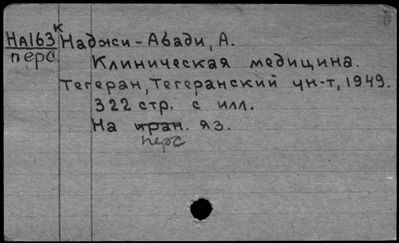 НА163 к Наджи-Абади, А.
перс Клиническая медицина.
Тегеран, Тегеранский ун-т, 1949.
322 стр. с илл.
На иран. яз.
перс